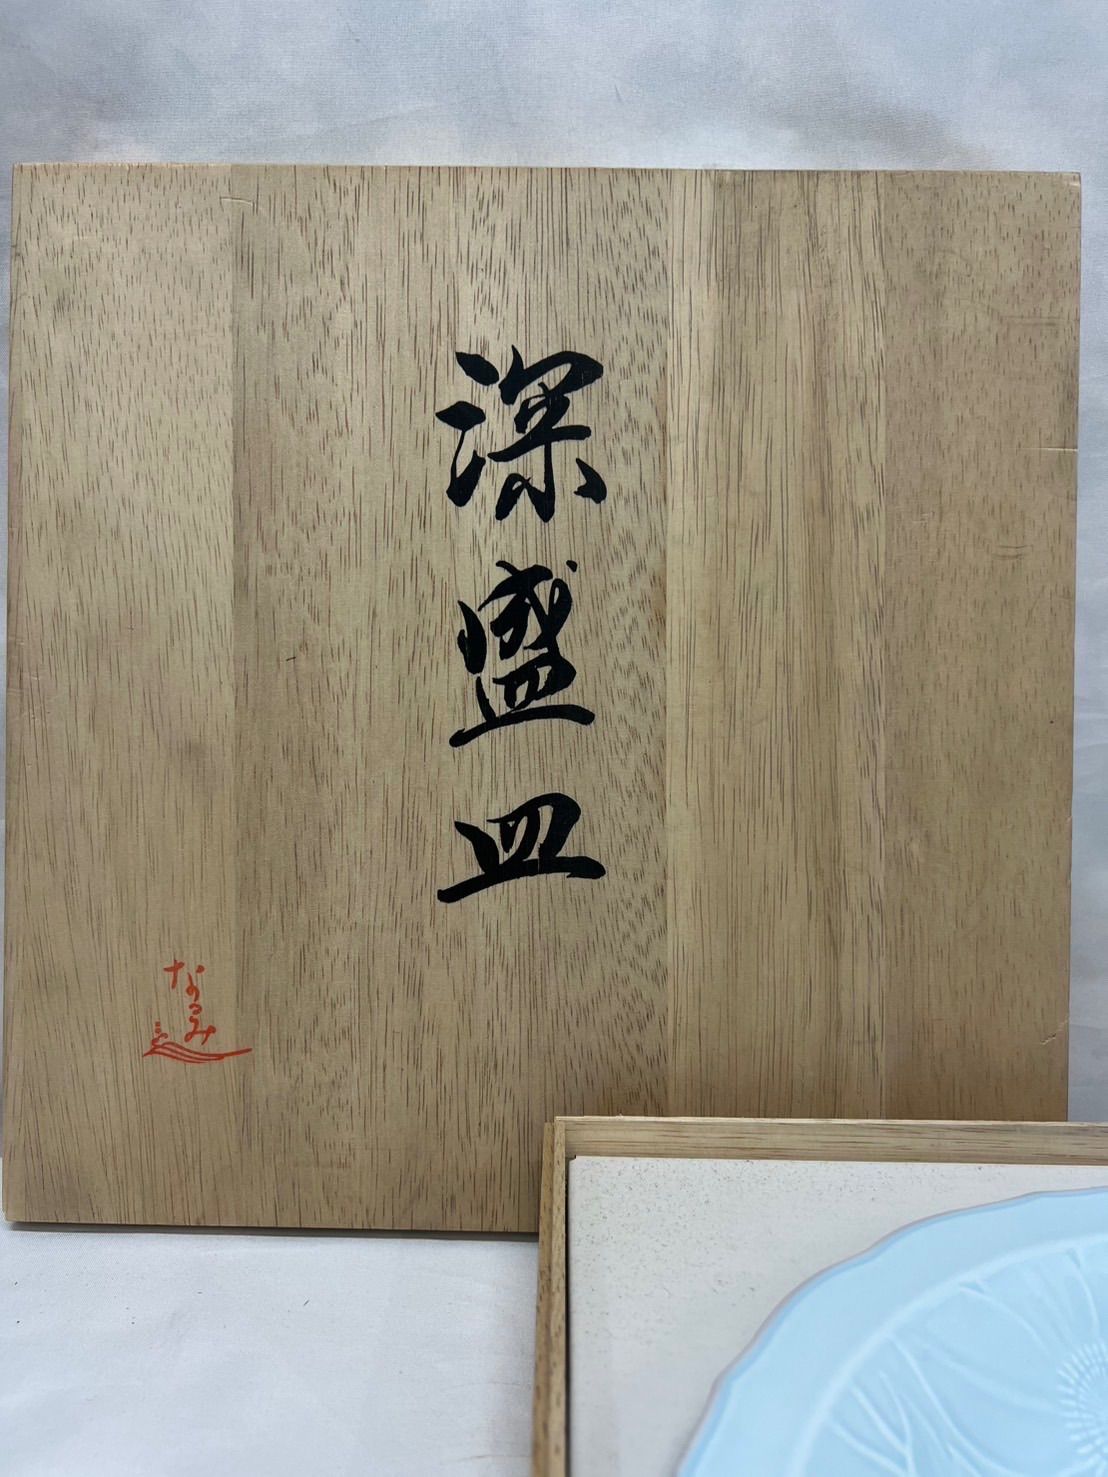 深盛皿
なるみ